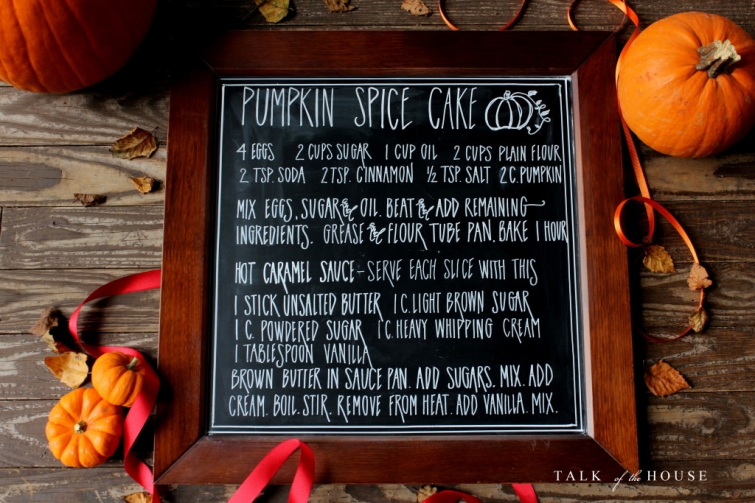 PUMPKIN SPICE CAKE
4 EGGS 2 CUPS SUGAR 1 CUP OIL 2 CUPS PLAIN FLOUR
2 TSP. SODA 2 TSP. CINNAMON ½ TSP. SALT 2 C. PUMPKIN
MIX EGGS, SUGAR & OIL. BEAT & ADD REMAINING
INGREDIENTS. GREASE & FLOUR TUBE PAN. BAKE 1 HOUR
HOT CARAMEL SAUCE - SERVE EACH SLICE WITH THIS
1 STICK UNSALTED BUTTER 1 C. LIGHT BROWN SUGAR
1 C. POWDERED SUGAR 1 C. HEAVY WHIPPING CREAM
1 TABLESPOON VANILLA
BROWN BUTTER IN SAUCE PAN. ADD SUGARS. MIX. ADD
CREAM. BOIL. STIR. REMOVE FROM HEAT. ADD VANILLA. MIX.
TALK of the HOUSE